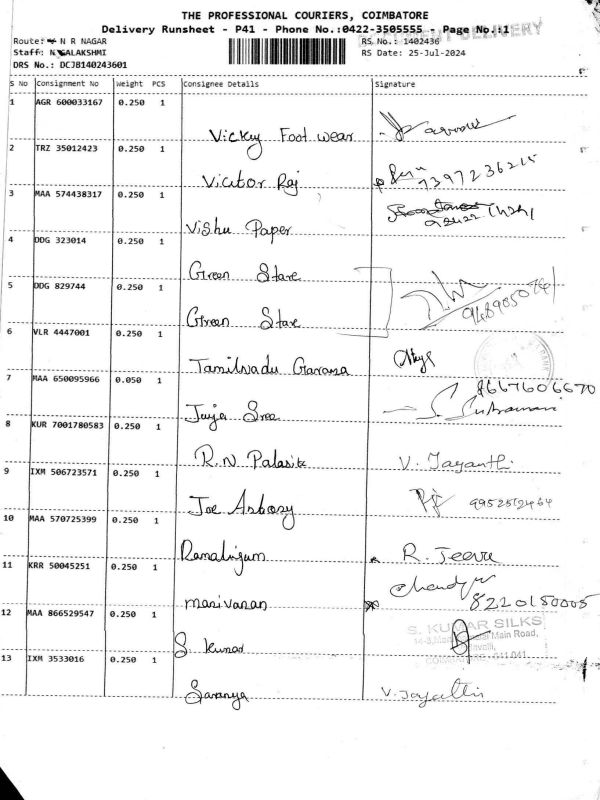 THE PROFESSIONAL COURIERS, COIMBATORE
Delivery Runsheet - P41 - Phone No.:0422-3505555 - Page No.:1
DELIVERY
Route: N R NAGAR
RS No.: 1402436
Staff: N ALAKSHMI
RS Date: 25-Jul-2024
DRS No.: DCJB140243601
S No Consignment No Weight PCS Consignee Details Signature
1 AGR 600033167 0.250 1
Vicky Foot wear
2 TRZ 35012423 0.250 1
Victor Raj
7397236215
3 MAA 574438317 0.250 1
Vishu Paper
4 DDG 323014 0.250 1
Green Stare
5 DDG 829744 0.250 1
Green Stare
6 VLR 4447001 0.250 1
Tamilnadu
7 MAA 650095966 0.050 1
8667606670
Sree
8 KUR 7001780583 0.250 1
R.N
V. Jayanthi
9 IXM 506723571 0.250 1
Joe
10 MAA 570725399 0.250 1
Ramalingam
R. Jeeva
11 KRR 50045251 0.250 1
manivanan
8220150005
12 MAA 866529547 0.250 1
S. KUMAR SILKS
Main Road,
S. kumar
13 IXM 3533016 0.250 1
Saranya